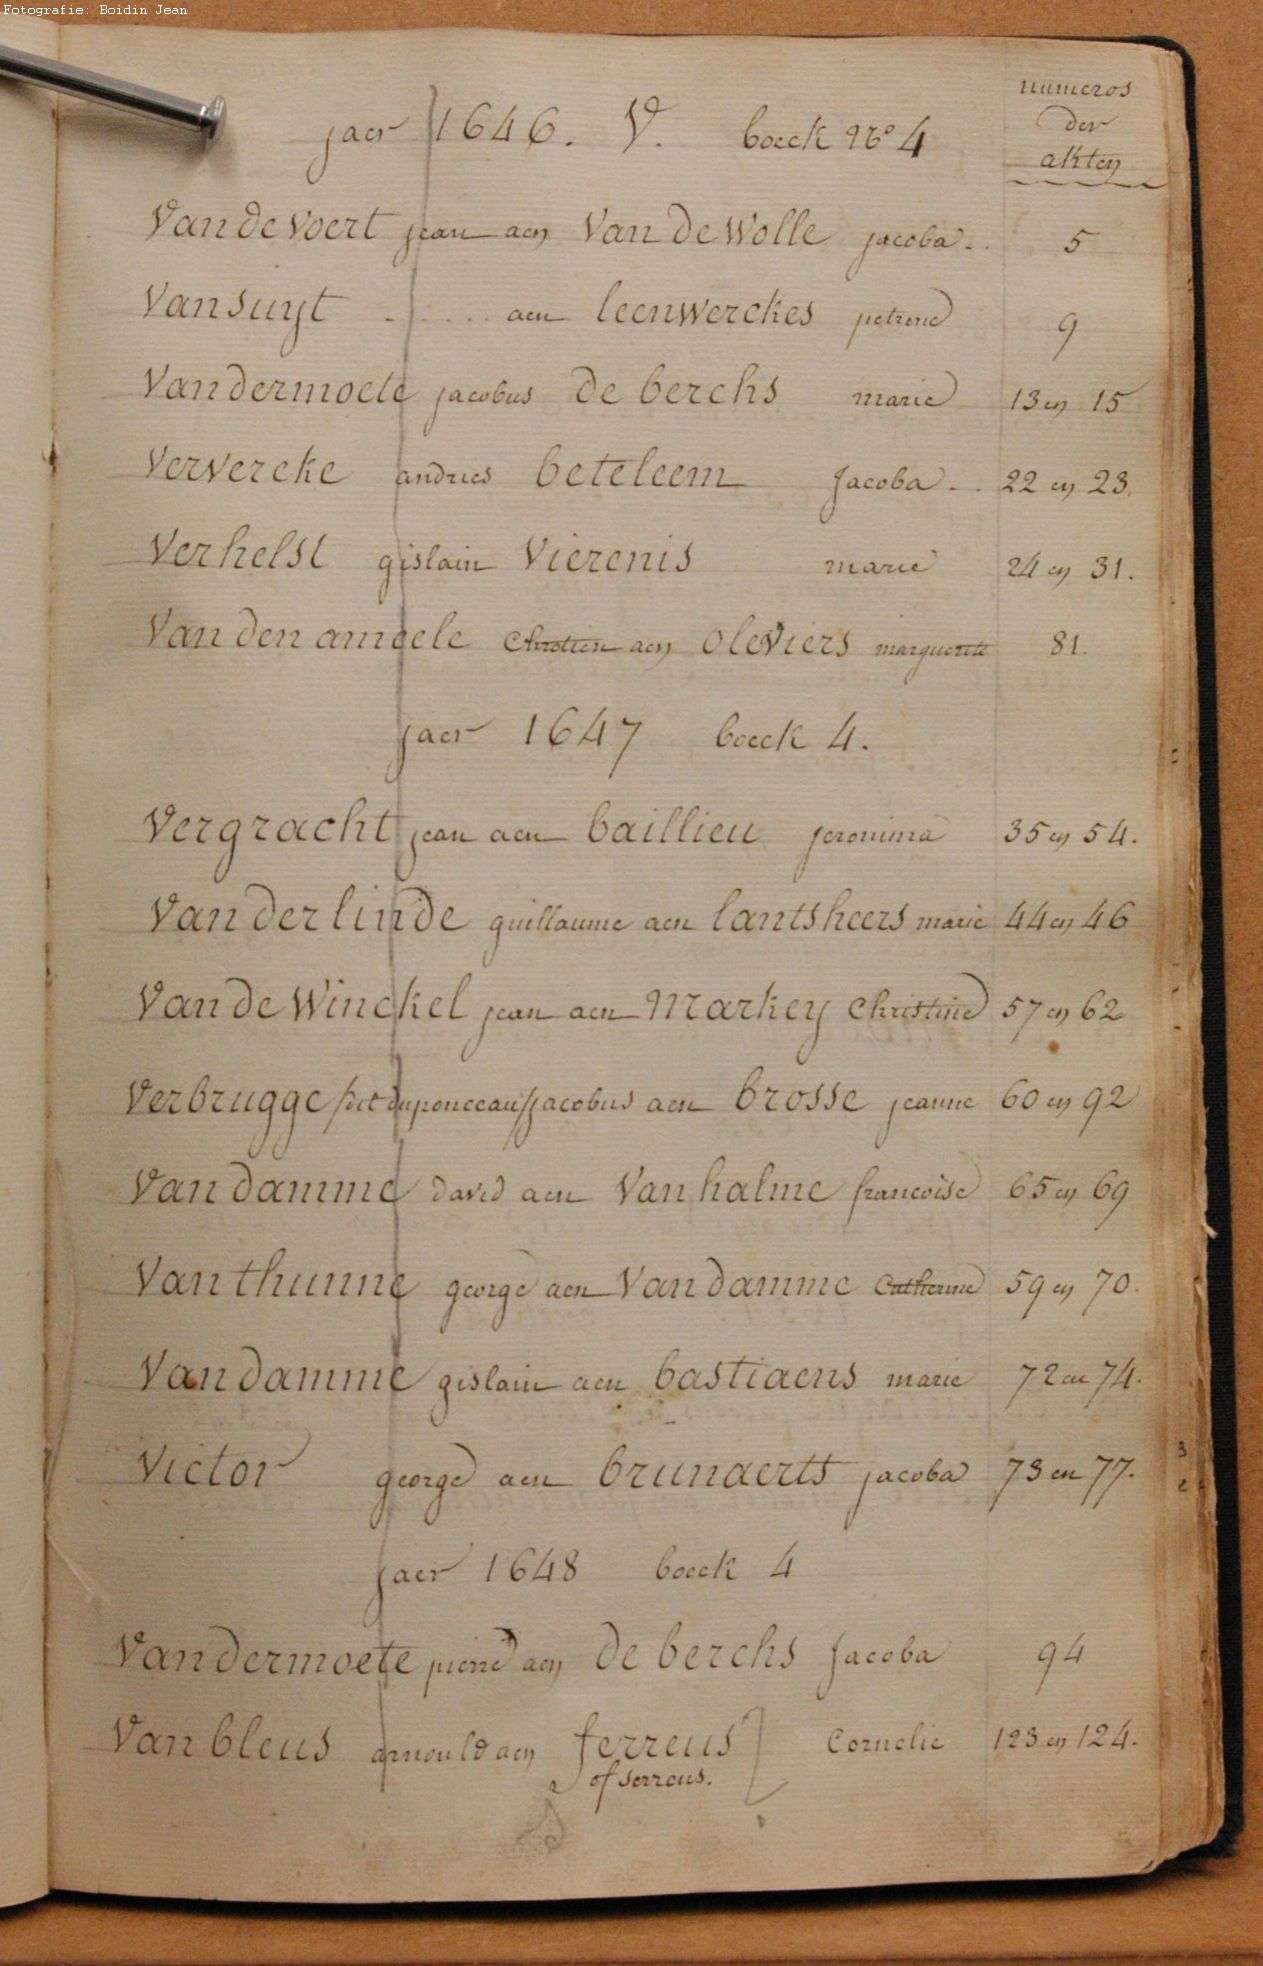 Fotografie: Boidin Jean
numeros
der
akten
jaer 1646. V. boeck No 4
Van de Voert jean aen Van De Wolle jacoba. . 5
Van suyt . . . . . aen leenwerckes petrone 9
Van dermoete jacobus De berchs marie 13 en 15
Ververcke andries beteleem Jacoba . . 22 en 23.
Verhelst gislain Vierenis marie 24 en 31.
Van den ameele Chretien aen oleviers marguerite 81.
jaer 1647 boeck 4.
Vergracht jean aen baillieu jeronima 35 en 54.
Van der linde guillaume aen lantsheers marie 44 en 46
Van De Winckel jean aen Markey Christine 57 en 62
Verbrugge dit duponceau jacobus aen brosse jeanne 60 en 92
Van damme david aen Van halme francoise 65 en 69
Van thunne george aen Van damme Catherine 59 en 70.
Van damme gislain aen bastiaens marie 72 en 74.
Victor george aen brunaerts jacoba 73 en 77.
jaer 1648 boeck 4
Van dermoete pierre aen De berchs Jacoba 94
Van bleus arnould aen ferreus Cornelie 123 en 124.
of serreus.